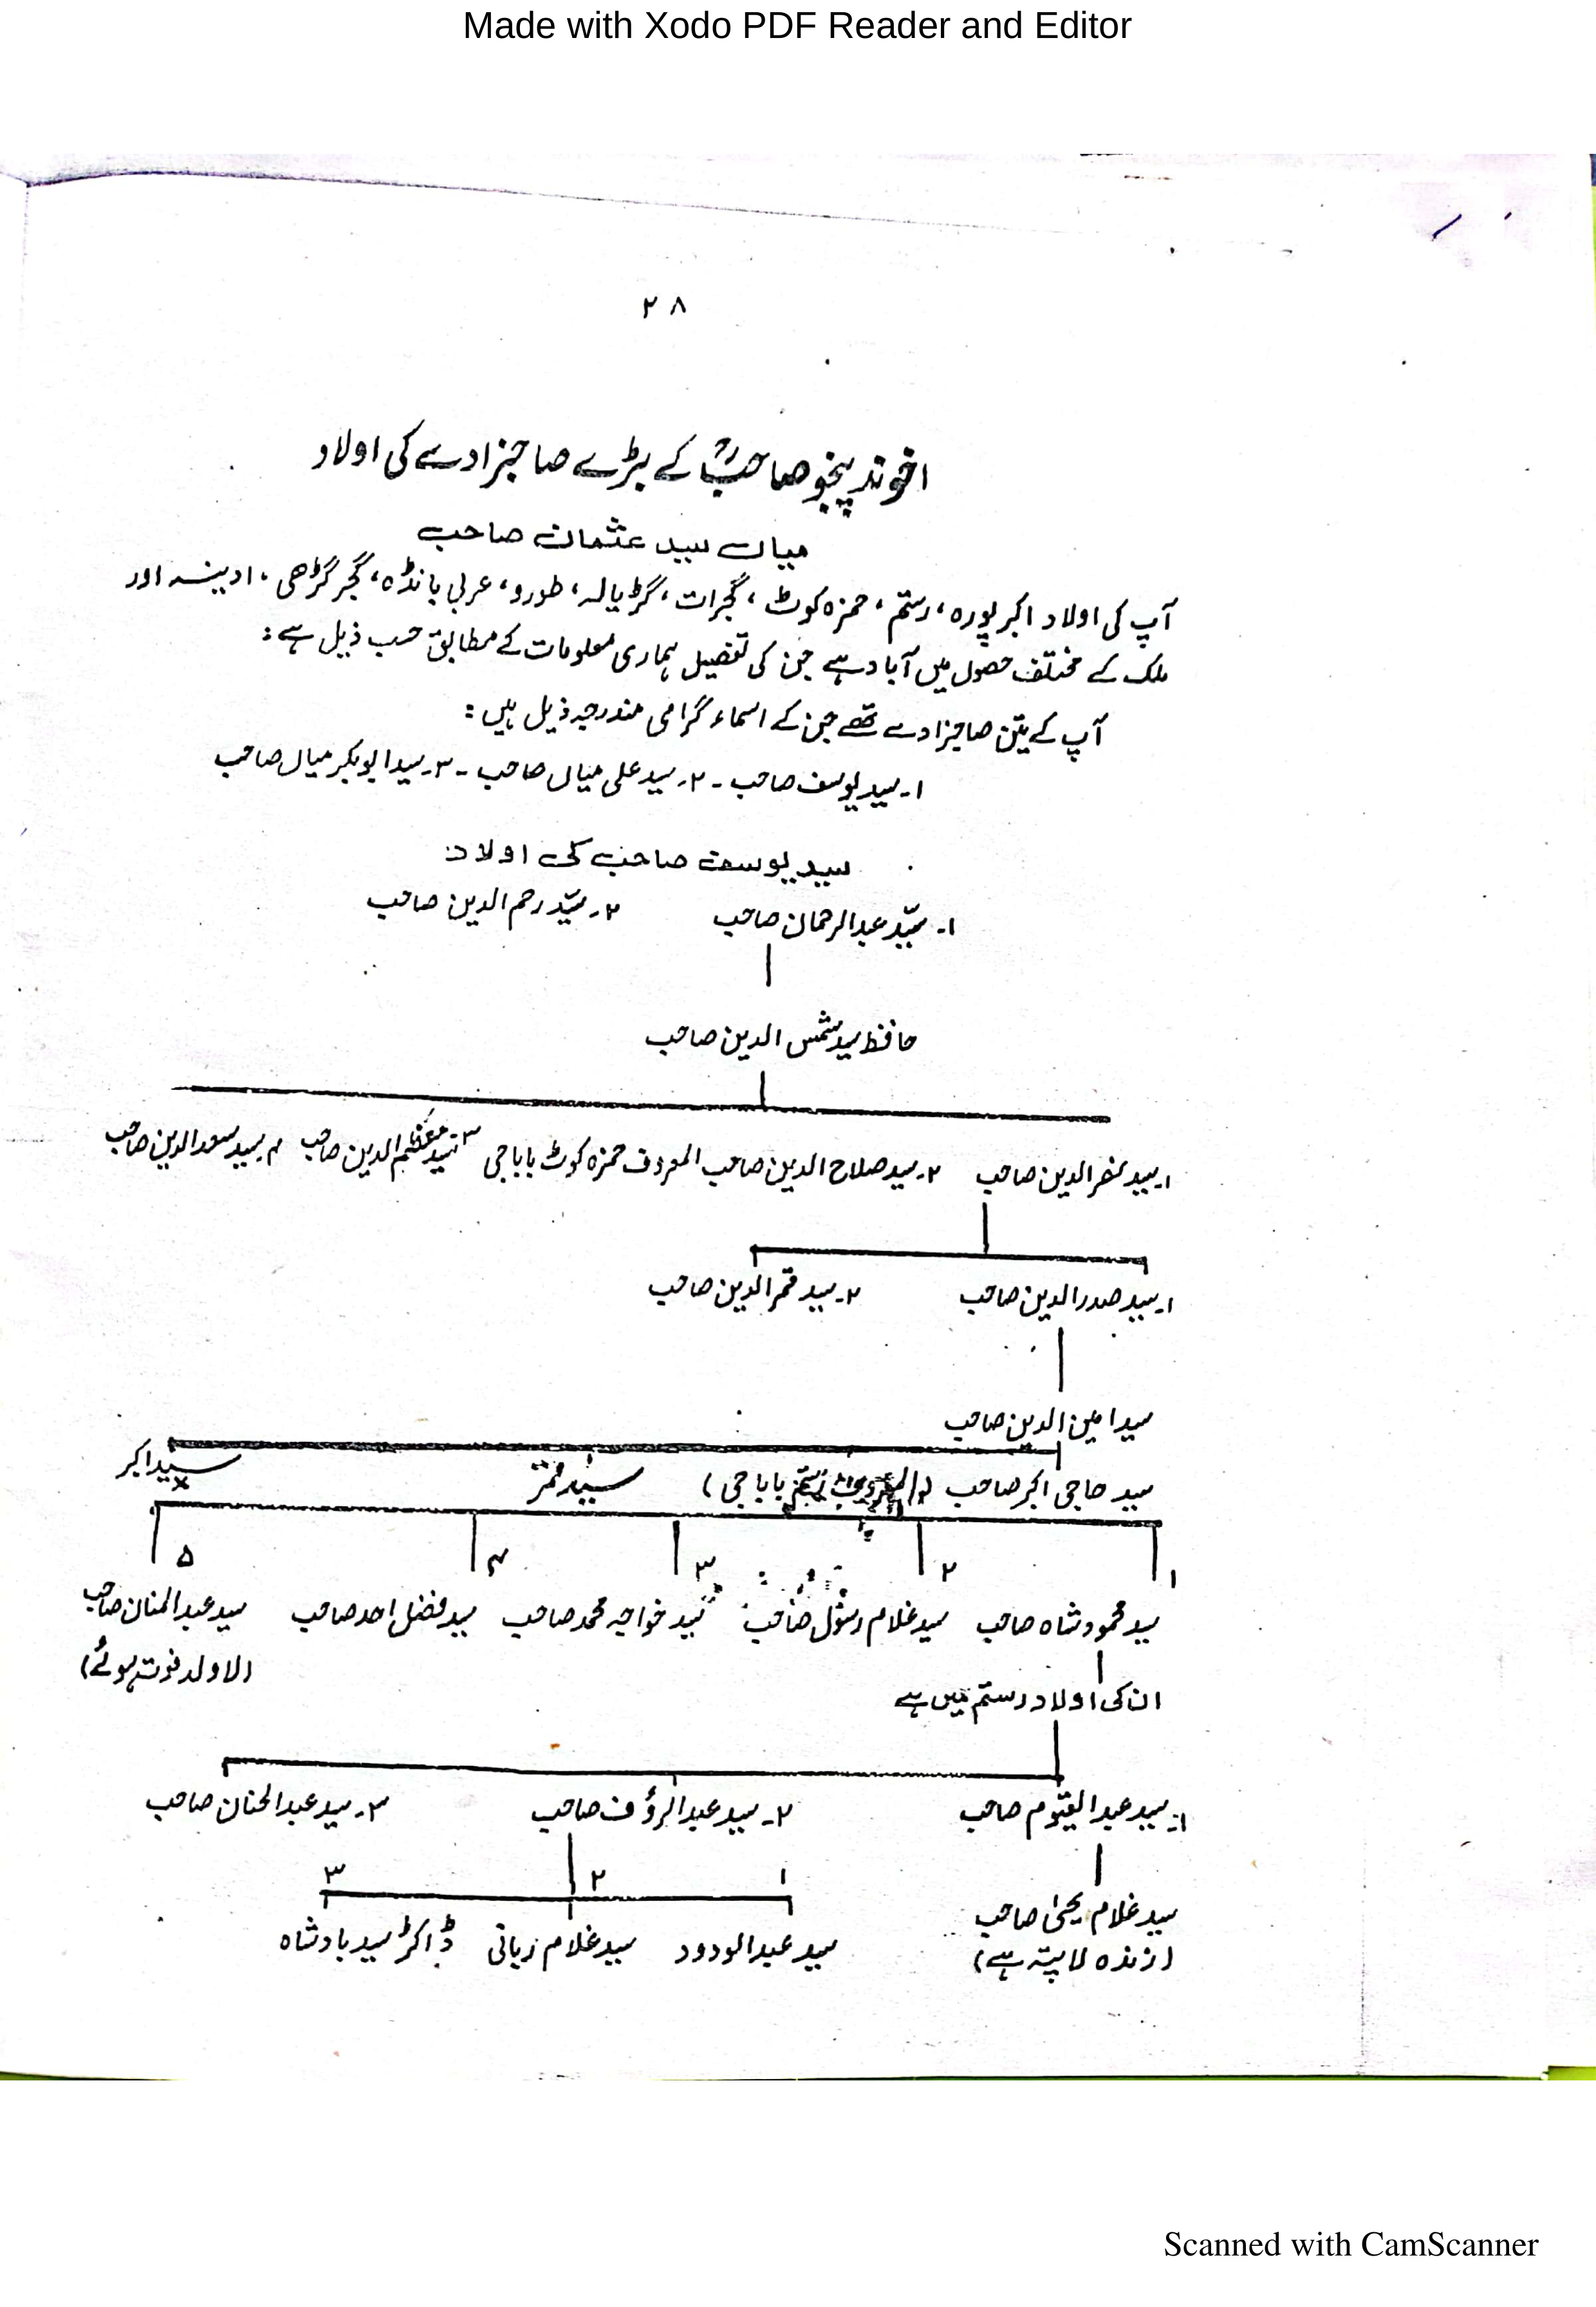 Made with Xodo PDF Reader and Editor
۲۸
اخوند پنجو صاحبؒ کے بڑے صاحبزادے کی اولاد
میاں سید عثمان صاحب
آپ کی اولاد اکبر پورہ، رستم، حمزہ کوٹ، گجرات، گڑیالہ، طورو، عربی بانڈہ، گجر گڑھی، ادینہ اور
ملک کے مختلف حصول میں آباد ہے جن کی تفصیل ہماری معلومات کے مطابق حسب ذیل ہے:
آپ کے تین صاحبزادے تھے جن کے اسماء گرامی مندرجہ ذیل ہیں:
۱۔ سید یوسف صاحب ۔ ۲۔ سید علی میاں صاحب ۔ ۳۔ سید ابوبکر میاں صاحب
سید یوسف صاحب کی اولاد:
۱۔ سیّد عبدالرحمان صاحب ۲۔ سیّد رحم الدین صاحب
حافظ سید شمس الدین صاحب
۱۔ سید نصر الدین صاحب ۲۔ سید صلاح الدین صاحب المعروف حمزہ کوٹ باباجی ۳۔ سید معظم الدین صاحب ۴۔ سید سعد الدین صاحب
۱۔ سید صدر الدین صاحب ۲۔ سید قمر الدین صاحب
سید امین الدین صاحب
سید حاجی اکبر صاحب (المعروف رستم باباجی) سید اکبر
۱ ۲ ۳ ۴ ۵
سید محمود شاہ صاحب سید غلام رسول صاحب سید خواجہ محمد صاحب سید فضل احد صاحب سید عبدالمنان صاحب
(لاولد فوت ہوئے)
ان کی اولاد رستم میں ہے
۱۔ سید عبدالقیوم صاحب ۲۔ سید عبدالرؤف صاحب ۳۔ سید عبدالحنان صاحب
۱ ۲ ۳
سید غلام یحیٰی صاحب سید عبدالودود سید غلام ربانی ڈاکٹر سید بادشاہ
(زندہ لاپتہ ہے)
Scanned with CamScanner